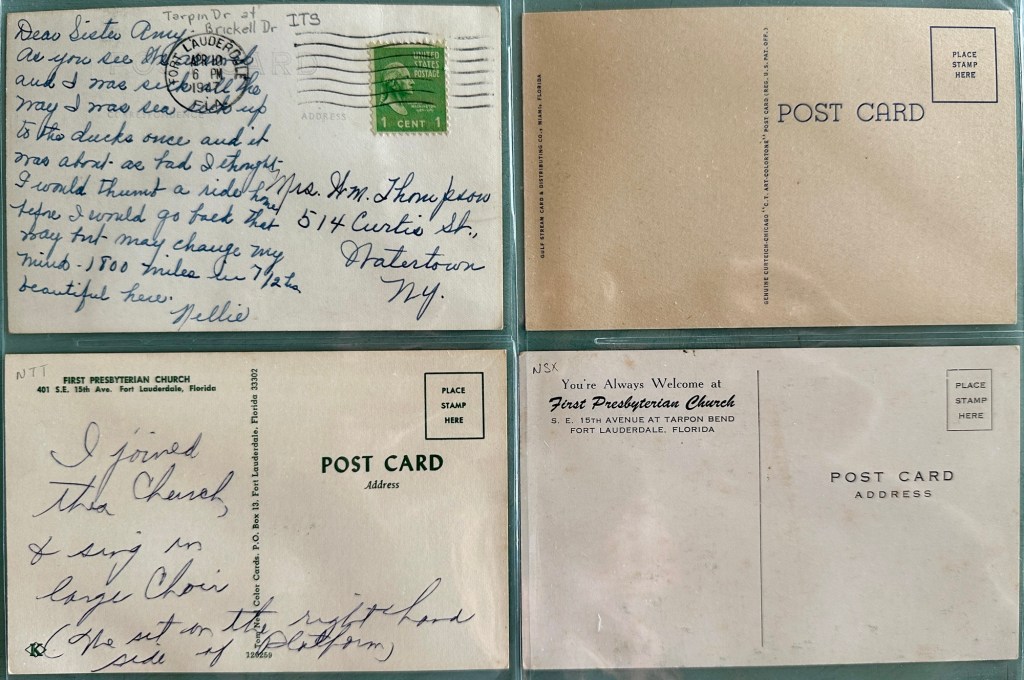 Tarpin Dr at
Brickell Dr
ITS
Dear Sister Amy-
As you see this
and I was sick all the
way I was sea sick up
to the ducks once and it
was about as bad I thought
I would thumb a ride home
before I would go back that
way but may change my
mind - 1800 miles in 7 1/2 hrs
beautiful here.
Nellie
FORT LAUDERDALE
APR 10
6 PM
1947
FLA.
UNITED
STATES
POSTAGE
1 CENT 1
CORRESPONDENCE
ADDRESS
Mrs. H.M. Thompson
514 Curtis St.,
Watertown
N.Y.
GULF STREAM CARD & DISTRIBUTING CO., MIAMI, FLORIDA
GENUINE CURTEICH-CHICAGO "C.T. ART-COLORTONE" POST CARD (REG. U.S. PAT. OFF.)
POST CARD
PLACE
STAMP
HERE
NTT
FIRST PRESBYTERIAN CHURCH
401 S.E. 15th Ave. Fort Lauderdale, Florida
I joined
this Church,
& sing in
large Choir
(We sit on the right hand
side of Platform)
K
Color Cards. P.O. Box 13. Fort Lauderdale, Florida 33302
126259
PLACE
STAMP
HERE
POST CARD
Address
NSX
You're Always Welcome at
First Presbyterian Church
S. E. 15TH AVENUE AT TARPON BEND
FORT LAUDERDALE, FLORIDA
PLACE
STAMP
HERE
POST CARD
ADDRESS